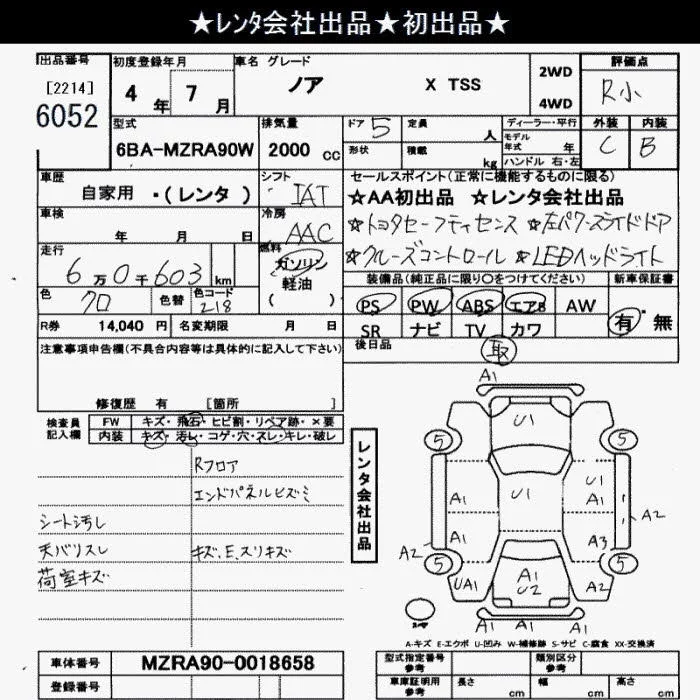 ★レンタ会社出品★初出品★
出品番号
[2214]
6052
初度登録年月
4 年 7 月
車名 グレード
ノア X TSS
2WD
4WD
評価点
R小
外装 内装
C B
型式
6BA-MZRA90W
排気量
2000 cc
ドア 5
形状
定員 人
積載 kg
ディーラー・平行
モデル
年式 年
ハンドル 右・左
車歴
自家用 ・(レンタ )
シフト
IAT
セールスポイント(正常に機能するものに限る)
★AA初出品 ★レンタ会社出品
☆トヨタセーフティセンス ☆左パワースライドドア
☆クルーズコントロール ☆LEDヘッドライト
車検
年 月 日
冷房
AAC
走行
6万0千603 km
燃料
ガソリン
軽油
( )
色
クロ
色替
色コード
218
装備品(純正品に限り○をつけてください)
新車保証書
PS PW ABS エアB AW
SR ナビ TV カワ
有・無
R券 14,040 円
名変期限 月 日
後日品
取
注意事項申告欄(不具合内容等は具体的に記入して下さい)
修復歴 有 [箇所 ]
検査員
記入欄
FW キズ・飛石・ヒビ割・リペア跡・×要
内装 キズ・汚レ・コゲ・穴・スレ・キレ・破レ
Rフロア
エンドパネルヒズミ
シート汚し
天バリスレ
キズ、E、スリキズ
荷室キズ
レンタ会社出品
A1
U1
5 5
U1
A1 A1
A2
A1 A3
A2
5 5
UA1 A1 U2 A2
A1 A1
A-キズ E-エクボ U-凹み W-補修跡 S-サビ C-腐食 XX-交換済
車体番号 MZRA90-0018658
登録番号
型式指定番号
参考
類別区分
参考
車庫証明用
参考
長さ cm
幅 cm
高さ cm